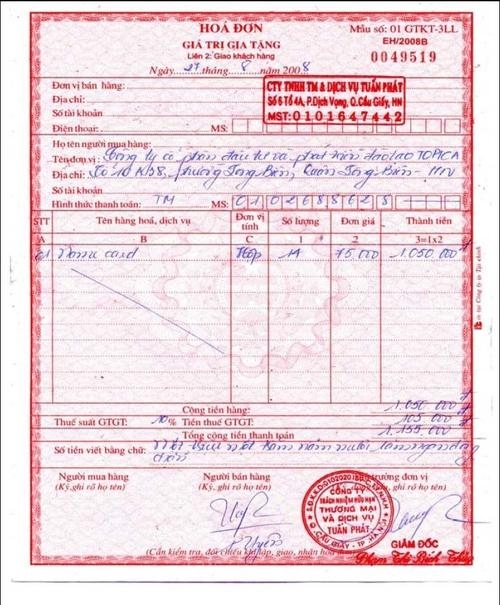 HOÁ ĐƠN
GIÁ TRỊ GIA TĂNG
Liên 2: Giao khách hàng
Ngày 27 tháng 8 năm 2008
Mẫu số: 01 GTKT-3LL
EH/2008B
0049519
Đơn vị bán hàng:
Địa chỉ:
Số tài khoản
Điện thoại: MS:
CTY TNHH TM & DỊCH VỤ TUẤN PHÁT
Số 6 Tổ 4A, P.Dịch Vọng, Q.Cầu Giấy, HN
MST: 0101647442
Họ tên người mua hàng:
Tên đơn vị: Công ty cổ phần đầu tư và phát triển đào tạo TOPICA
Địa chỉ: Số 10 phường Long Biên, Quận Long Biên - HN
Số tài khoản
Hình thức thanh toán: TM MS: 0102688628
STT Tên hàng hoá, dịch vụ Đơn vị tính Số lượng Đơn giá Thành tiền
A B C 1 2 3=1x2
01 Name card Hộp 14 75.000 1.050.000
Cộng tiền hàng: 1.050.000
Thuế suất GTGT: 10% Tiền thuế GTGT: 105.000
Tổng cộng tiền thanh toán 1.155.000
Số tiền viết bằng chữ: Một triệu một trăm năm mươi lăm ngàn đồng
chẵn
Người mua hàng Người bán hàng Thủ trưởng đơn vị
(Ký, ghi rõ họ tên) (Ký, ghi rõ họ tên)
CÔNG TY
TRÁCH NHIỆM HỮU HẠN
THƯƠNG MẠI
VÀ DỊCH VỤ
TUẤN PHÁT
Q. CẦU GIẤY - TP. HÀ NỘI
GIÁM ĐỐC
Phạm Thị Bích Thủy
(Cần kiểm tra, đối chiếu khi lập, giao, nhận hoá đơn)